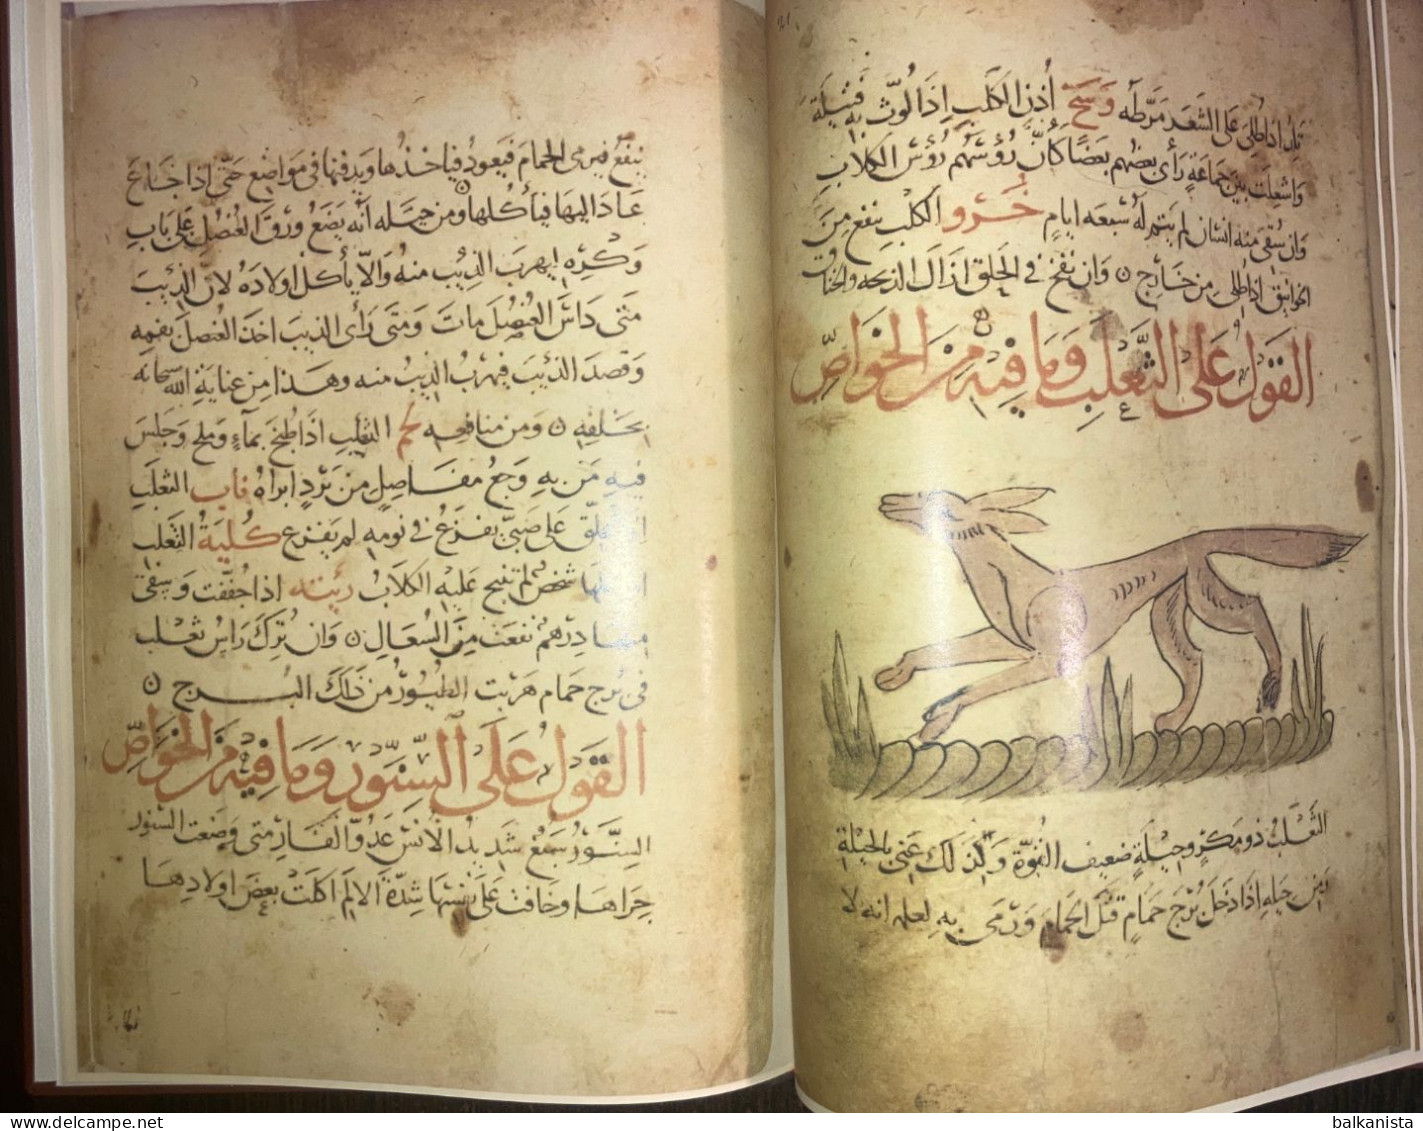 اذا طلى على الشعر مرّطه وسخ أذن الكلب إذا لوّث به فتيلة
واشعلت بين جماعة رأى بعضهم بعضا كأنّ رؤسهم رؤس الكلاب
وان سقى منه انسان لم يتم له سبعه ايام خرو الكلب ينفع من
الخوانيق اذا طلى من خارج وان نفخ في الحلق اذال الذبحه والخناق
القول على الثعلب وما فيه من الخواص
الثعلب ذو مكر وحيلة ضعيف القوّة ولذلك عنى بالحيلة
ومن حيله اذا دخل برج حمام قتل الحمام ورمى به لعلمه انه لا
ينفع فيرمى الحمام فيعود فياخذها ويدفنها فى مواضع حتّى اذا جاع
عاد اليها فيأكلها ومن حيله أنّه يضع ورق العنصل على باب
وكره ليهرب الذيب منه والّا يأكل اولاده لانّ الذيب
متى داس العنصل مات ومتى رأى الذيب اخذ العنصل بفمه
وقصد الذئيب فيهرب الذيب منه وهذا من عناية الله سبحانه
بخلقه ومن منافعه لحم الثعلب اذا طبخ بماء وملح وجلس
فيه من به وجع مفاصل من برد ابراه ناب الثعلب
علق على صبى يفزع فى نومه لم يفزع كلية الثعلب
شخص لم تنبح عليه الكلاب ريته اذا جففت وسقى
منها درهم نفعت من السعال وان ترك راس ثعلب
فى برج حمام هربت الطيور من ذلك البرج
القول على السنّور وما فيه من الخواصّ
السنّور سبع شديد الانس عدوّ الفار متى وضعت السنور
جراها وخافت على نفسها شدّة الالم اكلت بعض اولادها
delcampe.net
balkanista